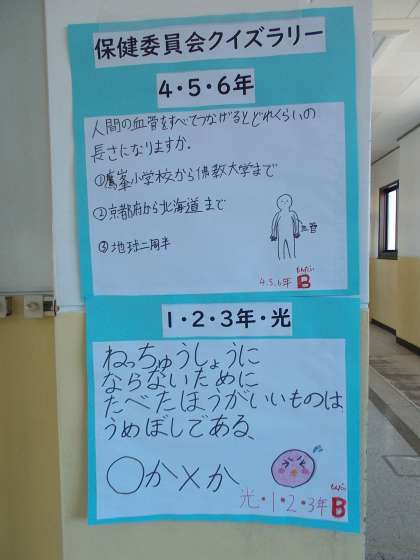 保健委員会クイズラリー
4・5・6年
人間の血管をすべてつなげるとどれくらいの
長さになりますか.
①鷹峯小学校から佛教大学まで
②京都府から北海道まで
③地球二周半
血管
4.5.6年 B
1・2・3年・光
ねっちゅうしょうに
ならないために
たべたほうがいいものは
うめぼしである、
〇か×か
光・1・2・3年 B